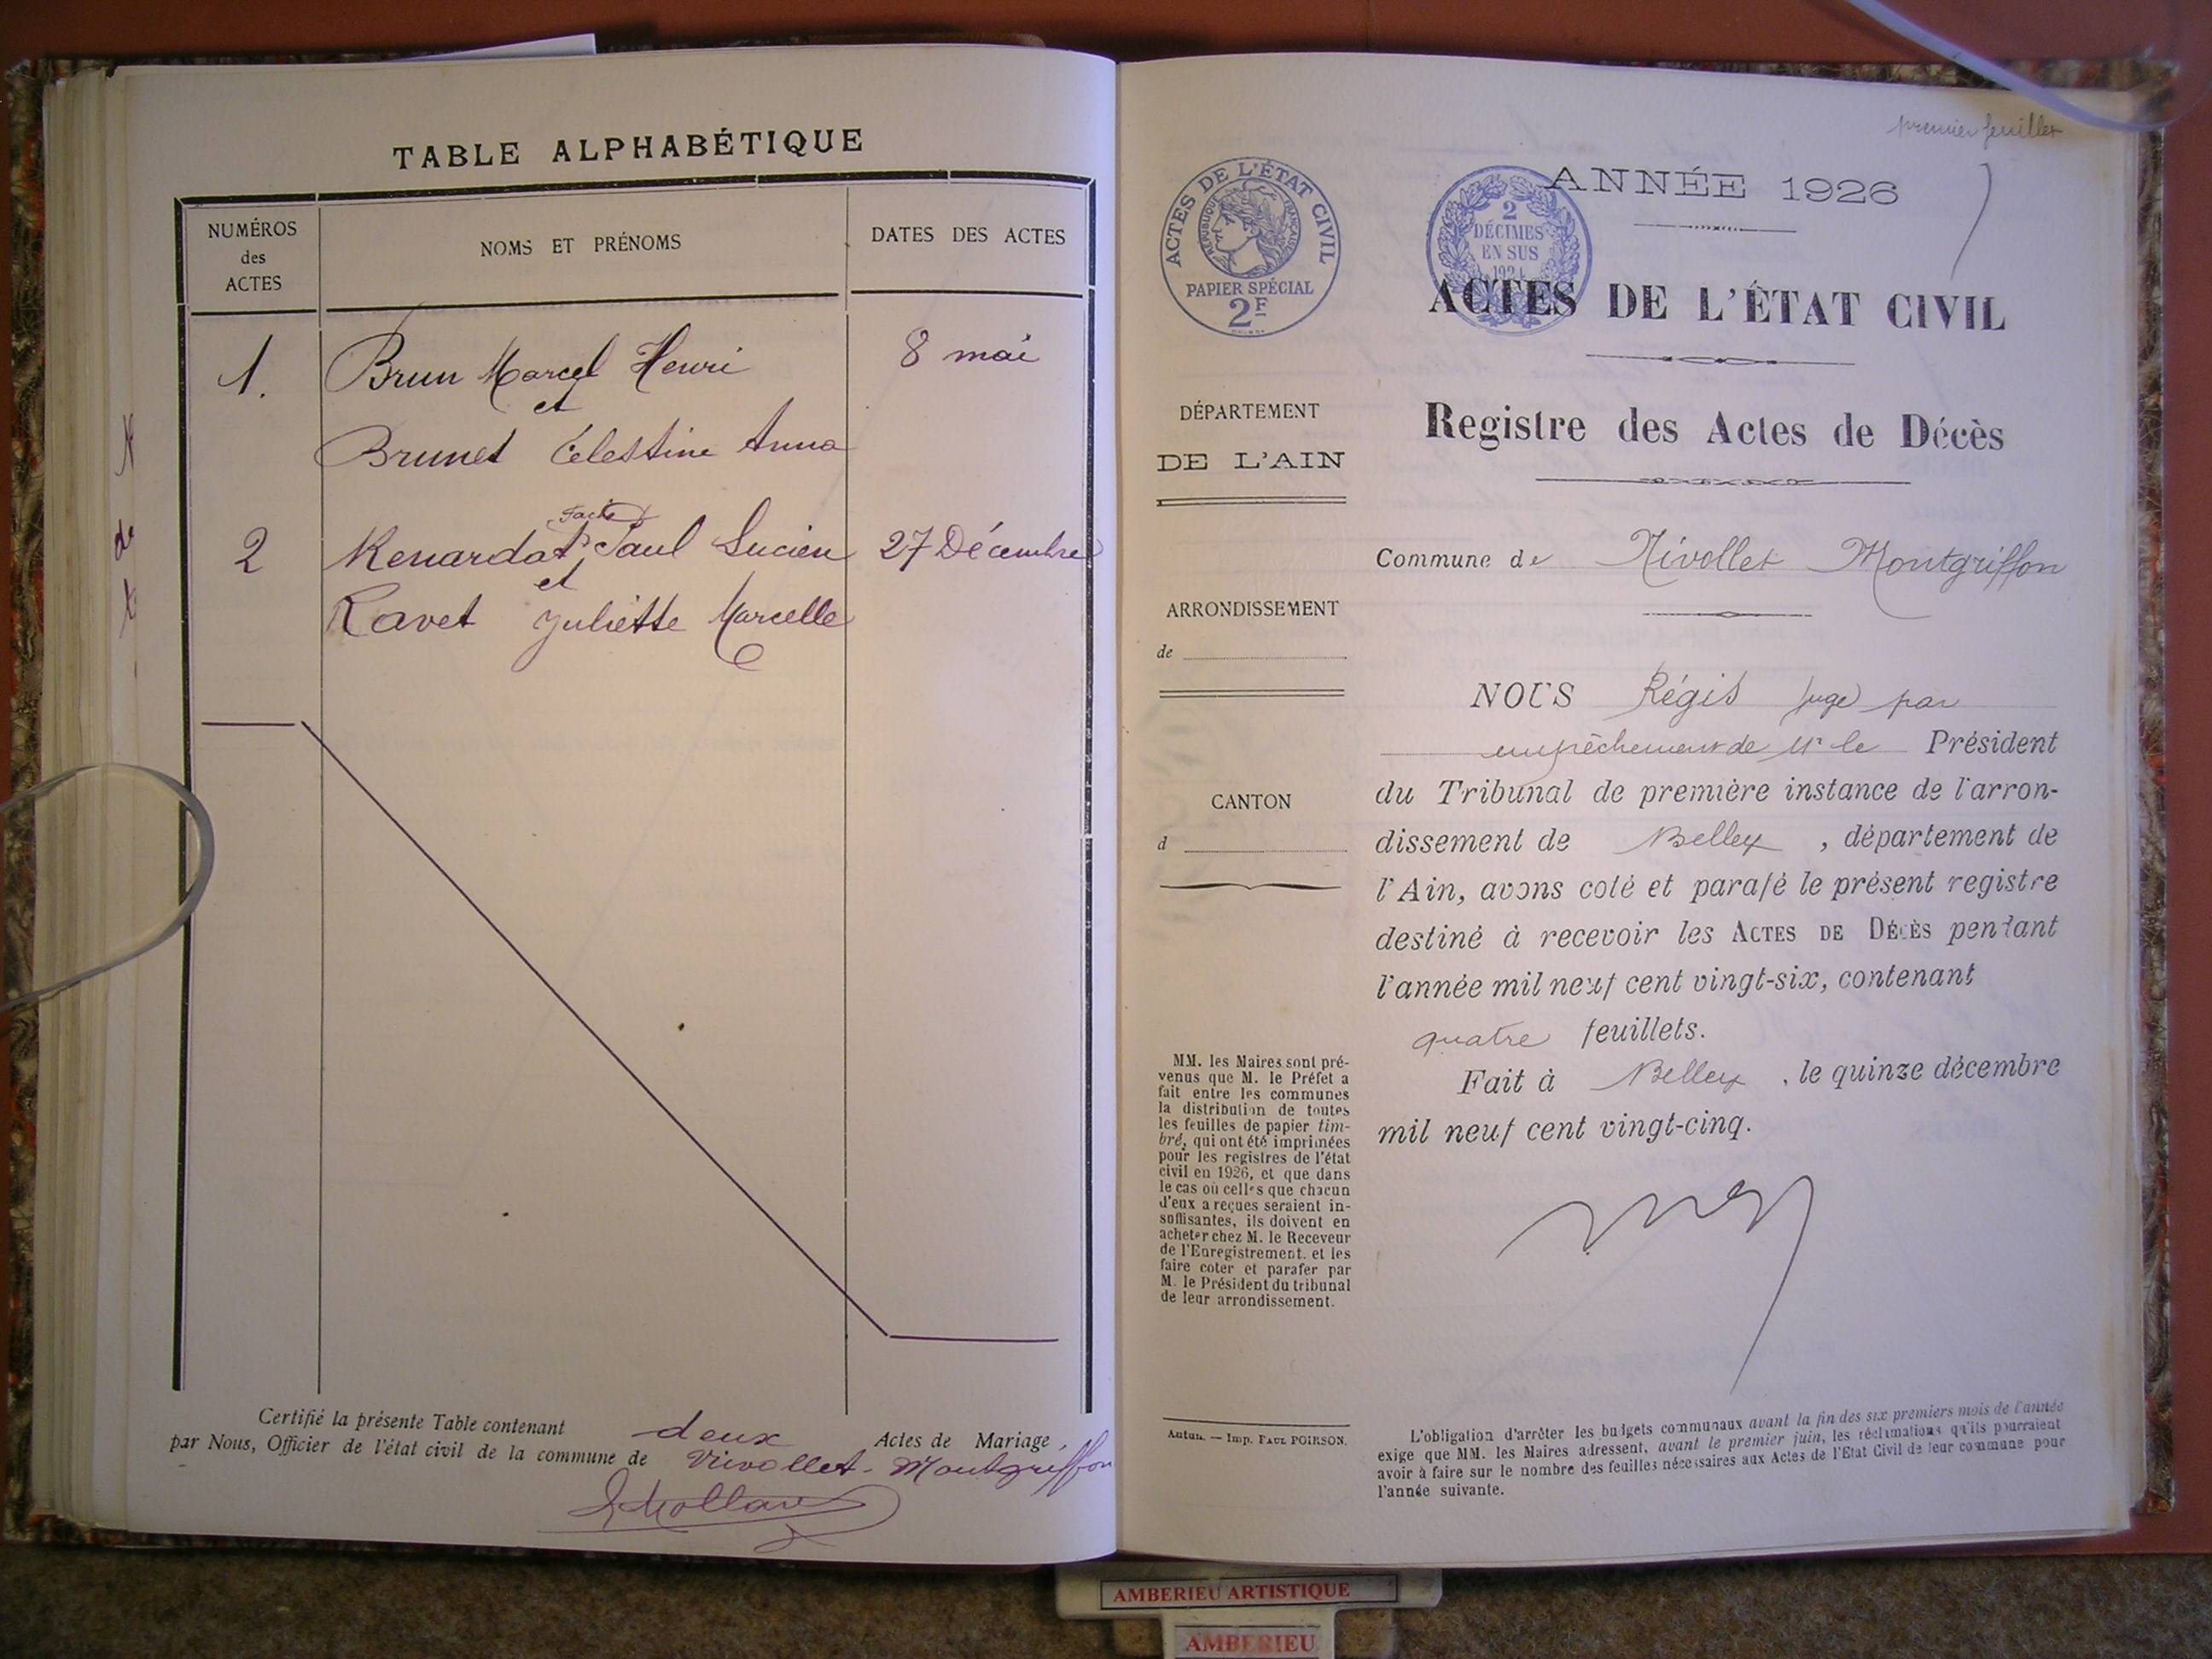 TABLE ALPHABÉTIQUE
NUMÉROS
des
ACTES
NOMS ET PRÉNOMS
DATES DES ACTES
1.
Brun Marcel Henri
8 mai
et
Brunet Célestine Anna
2
Renardat Paul Lucien
27 Décembre
et
Ravet Juliette Marcelle
Certifié la présente Table contenant deux Actes de Mariage,
par Nous, Officier de l'état civil de la commune de Nivollet-Montgriffon
premier feuillet
ACTES DE L'ÉTAT CIVIL
RÉPUBLIQUE FRANÇAISE
PAPIER SPÉCIAL
2F
2
DÉCIMES
EN SUS
ANNÉE 1926
ACTES DE L'ÉTAT CIVIL
Registre des Actes de Décès
DÉPARTEMENT
DE L'AIN
Commune de Nivollet Montgriffon
ARRONDISSEMENT
de
CANTON
d
NOUS Régis juge par
empêchement de Mr le Président
du Tribunal de première instance de l'arron-
dissement de Belley, département de
l'Ain, avons coté et parafé le présent registre
destiné à recevoir les ACTES DE DÉCÈS pendant
l'année mil neuf cent vingt-six, contenant
quatre feuillets.
Fait à Belley, le quinze décembre
mil neuf cent vingt-cinq.
MM. les Maires sont pré-
venus que M. le Préfet a
fait entre les communes
la distribution de toutes
les feuilles de papier tim-
bré, qui ont été imprimées
pour les registres de l'état
civil en 1926, et que dans
le cas où celles que chacun
d'eux a reçues seraient in-
suffisantes, ils doivent en
acheter chez M. le Receveur
de l'Enregistrement, et les
faire coter et parafer par
M. le Président du tribunal
de leur arrondissement.
Autun. — Imp. PAUL POIRSON.
L'obligation d'arrêter les budgets communaux avant la fin des six premiers mois de l'année
exige que MM. les Maires adressent, avant le premier juin, les réclamations qu'ils pourraient
avoir à faire sur le nombre des feuilles nécessaires aux Actes de l'Etat Civil de leur commune pour
l'année suivante.
AMBERIEU ARTISTIQUE
AMBERIEU